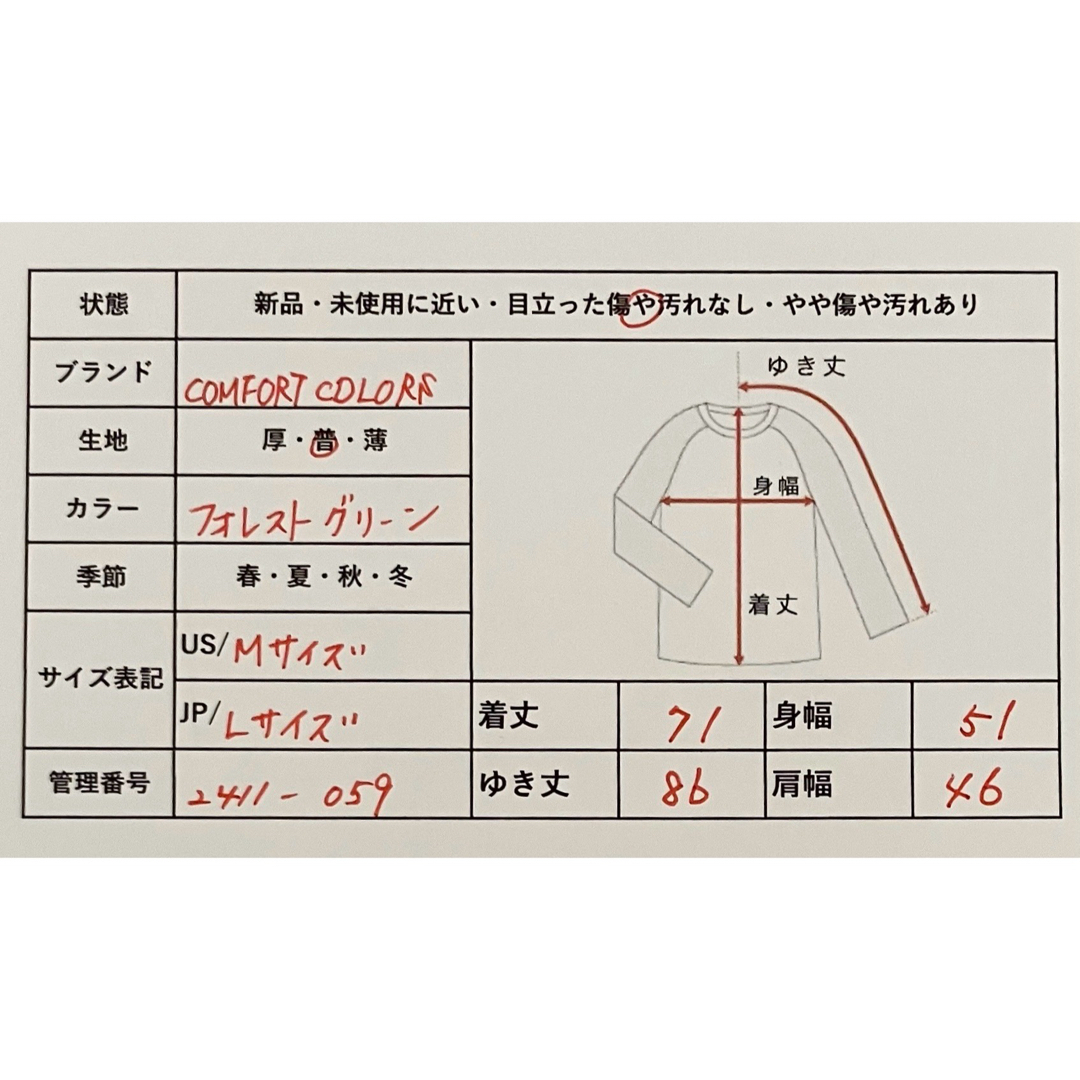 状態 新品・未使用に近い・目立った傷や汚れなし・やや傷や汚れあり
ブランド COMFORT COLORS
生地 厚・普・薄
カラー フォレストグリーン
季節 春・夏・秋・冬
サイズ表記 US/Mサイズ
JP/Lサイズ
管理番号 2411-059
ゆき丈
身幅
着丈
着丈 71 身幅 51
ゆき丈 86 肩幅 46